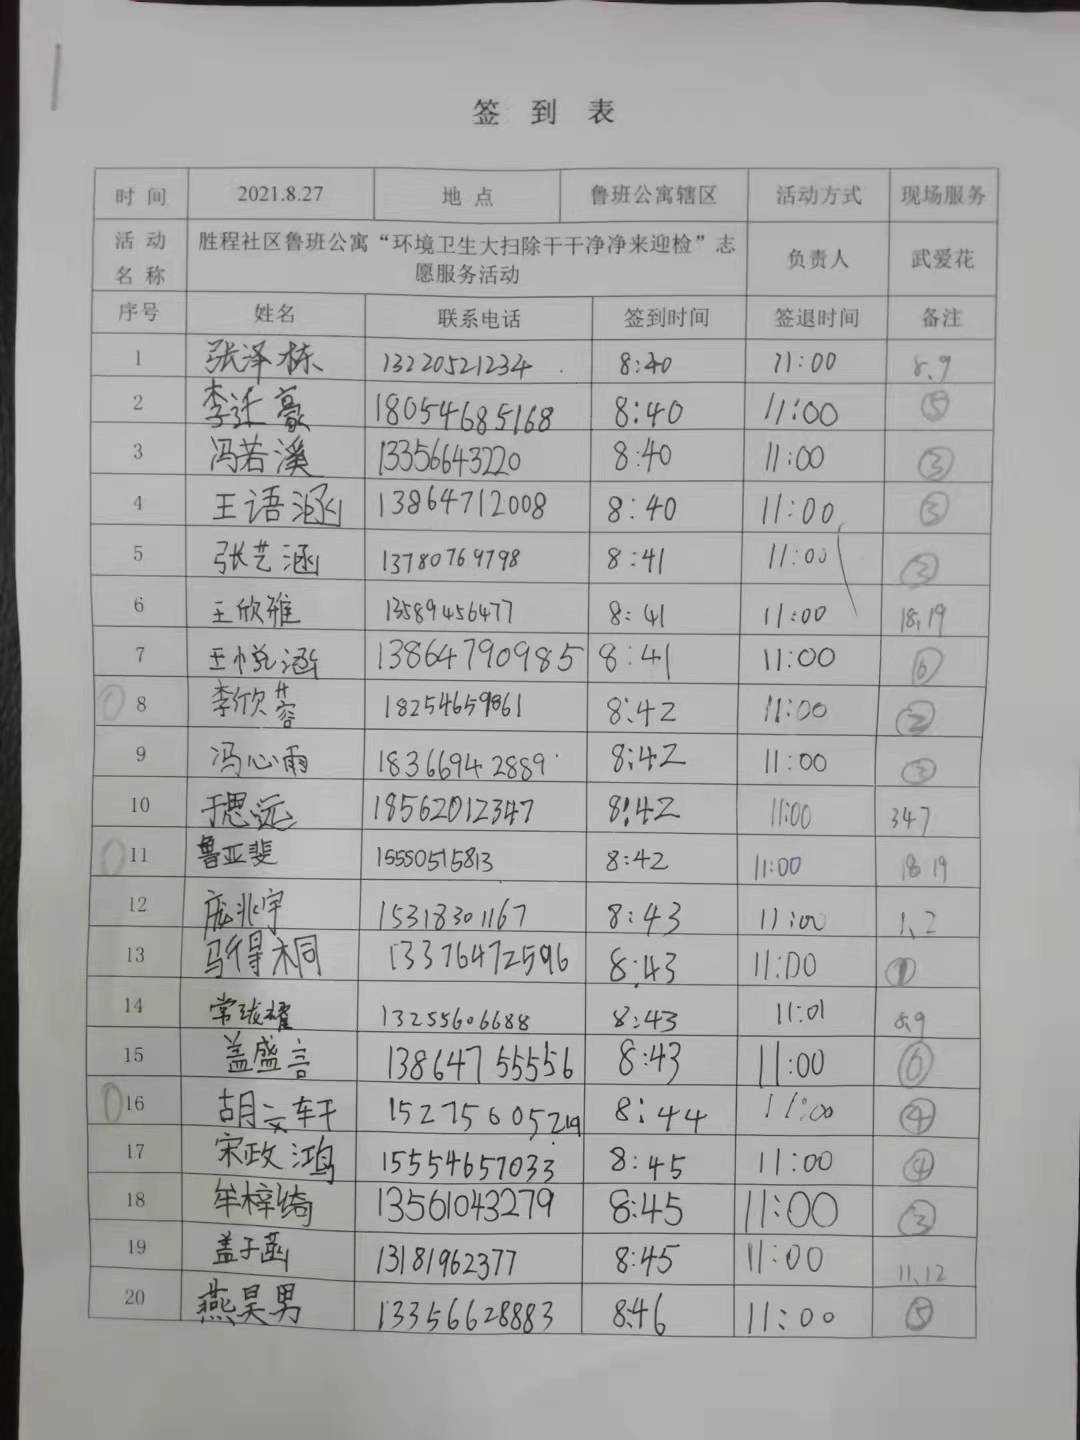 签 到 表
时 间 2021.8.27 地 点 鲁班公寓辖区 活动方式 现场服务
活 动 名 称 胜程社区鲁班公寓“环境卫生大扫除干干净净来迎检”志
愿服务活动 负责人 武爱花
序号 姓名 联系电话 签到时间 签退时间 备注
1 张泽栋 13220521234 8:40 11:00 8、9
2 李 豪 18054685168 8:40 11:00 ⑤
3 冯若溪 13356643220 8:40 11:00 ③
4 王语涵 13864712008 8:40 11:00 ③
5 张艺涵 13780769798 8:41 11:00 ②
6 王欣雅 13589456477 8:41 11:00 18、19
7 王悦涵 13864790985 8:41 11:00 ⑥
8 李欣蓉 18254659861 8:42 11:00 ②
9 冯心雨 18366942889 8:42 11:00 ③
10 于思远 18562012347 8:42 11:00 347
11 鲁亚斐 15550515813 8:42 11:00 18 19
12 庞兆宇 15318301167 8:43 11:00 1、2
13 马得桐 13376472596 8:43 11:00 ①
14 常 耀 13255606688 8:43 11:01 8,9
15 盖盛言 13864755556 8:43 11:00 ⑥
16 胡文轩 15275605219 8:44 11:00 ④
17 宋政鸿 15554657033 8:45 11:00 ④
18 牟梓绮 13561043279 8:45 11:00 ③
19 盖子菡 13181962377 8:45 11:00 11、12
20 燕昊男 13356628883 8:46 11:00 ⑤